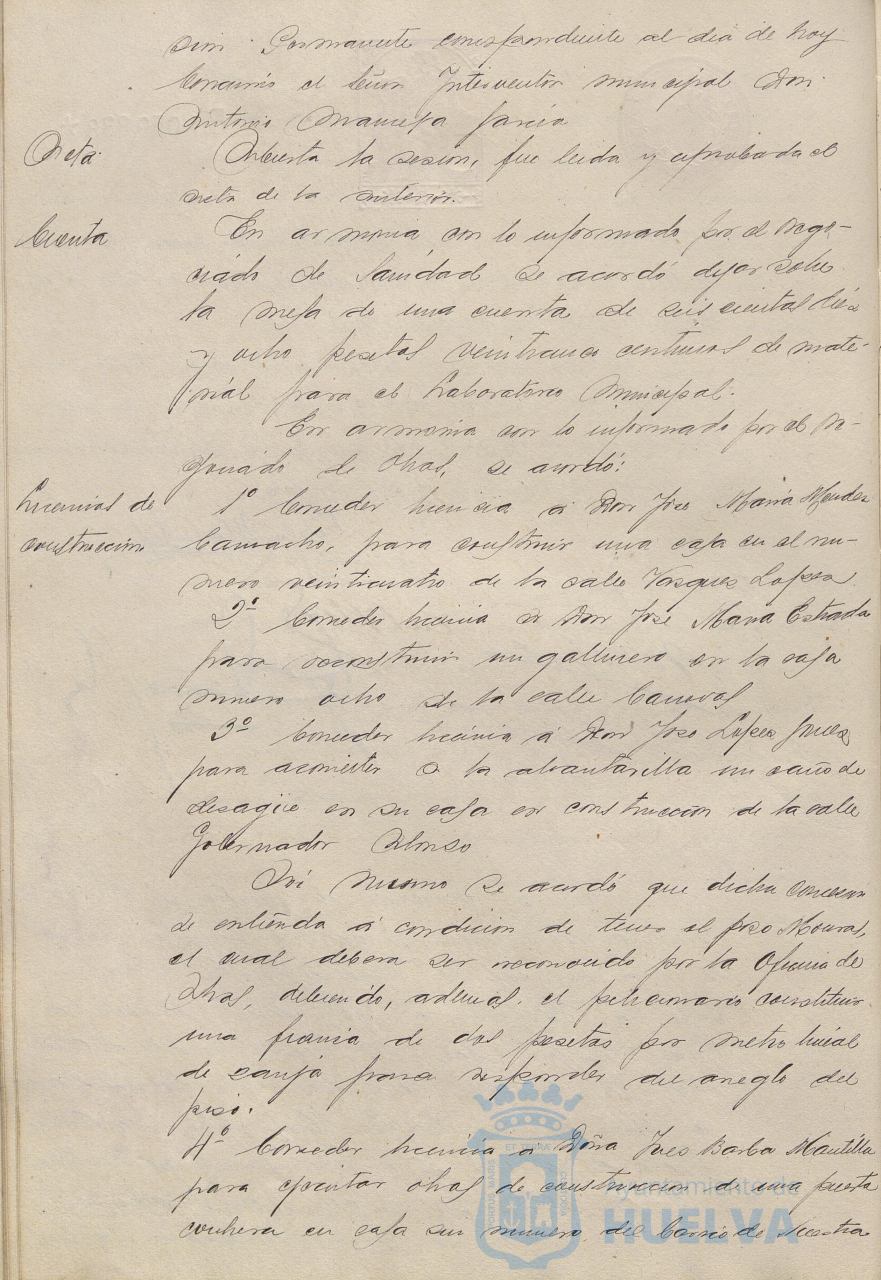 sion Permanente correspondiente al dia de hoy
Concurrió el Señor Interventor municipal Don
Antonio Mancera García
Acta.
Abierta la sesion, fue leida y aprobada el
acta de la anterior.
Cuenta
En armonia con lo informado por el Nego-
ciado de Sanidad se acordó dejar sobre
la mesa de una cuenta de seis cientas diez
y ocho pesetas veinticinco centimos de mate-
rial para el Laboratorio Municipal.
En armonia con lo informado por el Ne-
gociado de Obras, se acordó:
Licencias de
construcción
1º Conceder licencia á Don Jose Maria Mendez
Camacho, para construir una casa en el nu-
mero veinticuatro de la calle Vazquez Lopez
2º Conceder licencia á Don Jose Maria Estrada
para reconstruir un gallinero en la casa
numero ocho de la calle Canovas
3º Conceder licencia á Don Jose Lopez
para acometer á la alcantarilla un caño de
desagüe en su casa en construcción de la calle
Gobernador Alonso
Asi mismo se acordó que dicha concesion
se entienda á condicion de tener el pozo Mouras,
el cual debera ser reconocido por la Oficina de
Obras, debiendo, ademas, el peticionario constituir
una fianza de dos pesetas por metro lineal
de zanja para responder del arreglo del
piso.
4º Conceder licencia á Doña Ines Barba Mantilla
para ejecutar obras de construccion de una puerta
cochera en casa sin numero del Barrio de Nuestra
Ayuntamiento de
HUELVA